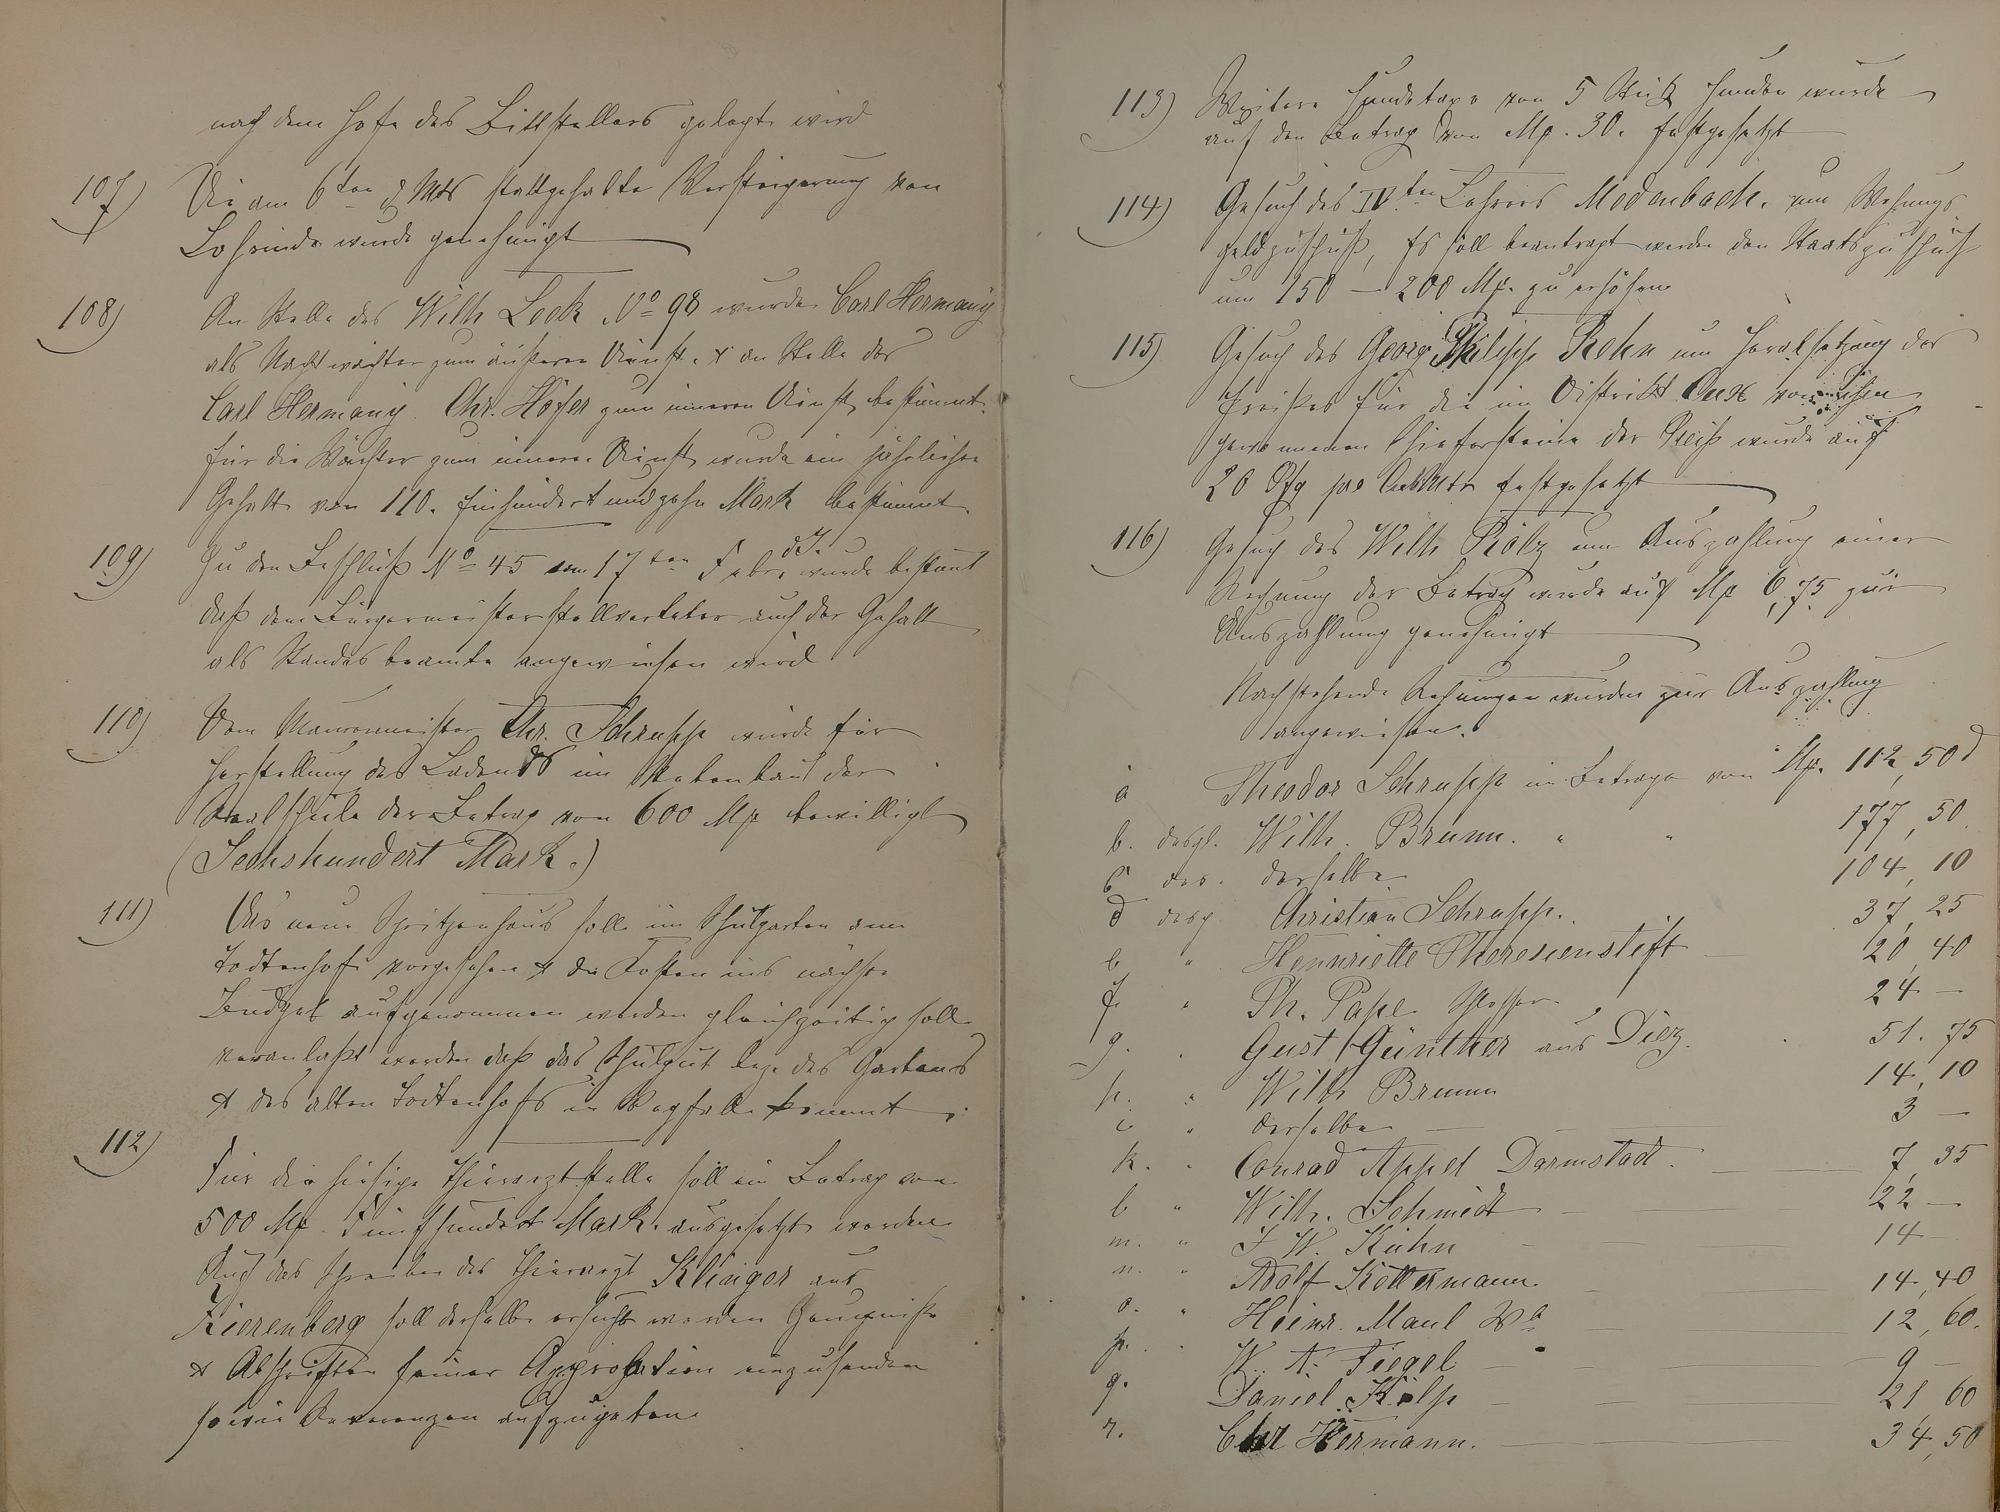 nach dem Hofe des Bittstellers gelegt wird
107) Die am 6ten d Mts stattgehabte Versteigerung von
Lohrinde wurde genehmigt
108) An Stelle des Wilh Leck No 98 wurde Carl Hermany
als Nachtwächter zum äußeren Dienst & an Stelle des
Carl Hermany Chr. Höfer zum inneren Dienst bestimmt.
für die Wächter zum inneren Dienst wurde ein jährlicher
Gehalt von 110. Einhundert und zehn Mark bestimmt
109) Zu dem Beschluß No 45 vom 17ten Febr. d J. wurde bestimt
daß dem Bürgermeisterstellvertreter auch der Gehalt
als Standesbeamte angewiesen wird
110) Dem Maurermeister Chr. Schrupp wurde für
Herstellung des Ladens im
der Betrag von 600 Mk bewilligt
(Sechshundert Mark.)
111) Das neue Spritzenhaus soll im Schulgarten am
Todtenhofe vorgesehen & die Kosten ins nächste
Budget aufgenommen werden gleichzeitig soll
veranlaßt werden daß das Schulgut des Gartens
& des alten Todtenhofs in Wegfall kommt.
112) Für die hiesige Thierarztstelle soll ein Betrag von
500 Mk. Fünfhundert Mark. ausgesetzt werden
Auf das Schreiben des Thierarzt Klinger aus
Zierenberg soll derselbe ersucht werden Zeugniße
& Abschriften seiner Approbation einzusenden
sowie Referenzen aufzugeben
113) Weitere Hundetaxe von 5 Stück Hunde wurde
auf den Betrag von Mk. 30. festgesetzt
114) Gesuch des IVten Lehrers Modenbach. um Wohnungs
geldzuschuß, Es soll beantragt werden den Staatszuschuß
um 150 — 200 Mk. zu erhöhen
115) Gesuch des Georg Philipp Rehn um Herabsetzung des
Preißes für die im Distrikt
gewonnenen Schiefersteine der Preiß wurde auf
20 Pfg pro festgesetzt
116) Gesuch des Wilh um Auszahlung einer
Rechnung der Betrag wurde auf Mk 6,75 zur
Auszahlung genehmigt
Nachstehende Rechnungen wurden zur Auszahlung
angewiesen.
a Theodor Schrupp im Betrage von Mk. 112,50
b. desgl. Wilh. Brumm. " " 177,50
c des. derselbe 104,10
d desg Christian Schrupp. 37,25
e " Hennriette Theresienstift 20,40
f " Ph. Pape Schlosser 24 —
g. " Gust Günther aus Diez. 51.75
h. " Wilh Brumm 14,10
i " derselbe — 3 —
k. " Conrad Appel Darmstadt. 7,35
l " Wilh. Schmidt 22 —
m. " J W. Kuhn 14 —
n. " Adolf Kottermann. 14,40
o. " Heinr. Maul 12,60.
p. " W. A. Fiegel 9 —
q. Daniel Kölsh 21 60
r. Hermann. 34,50